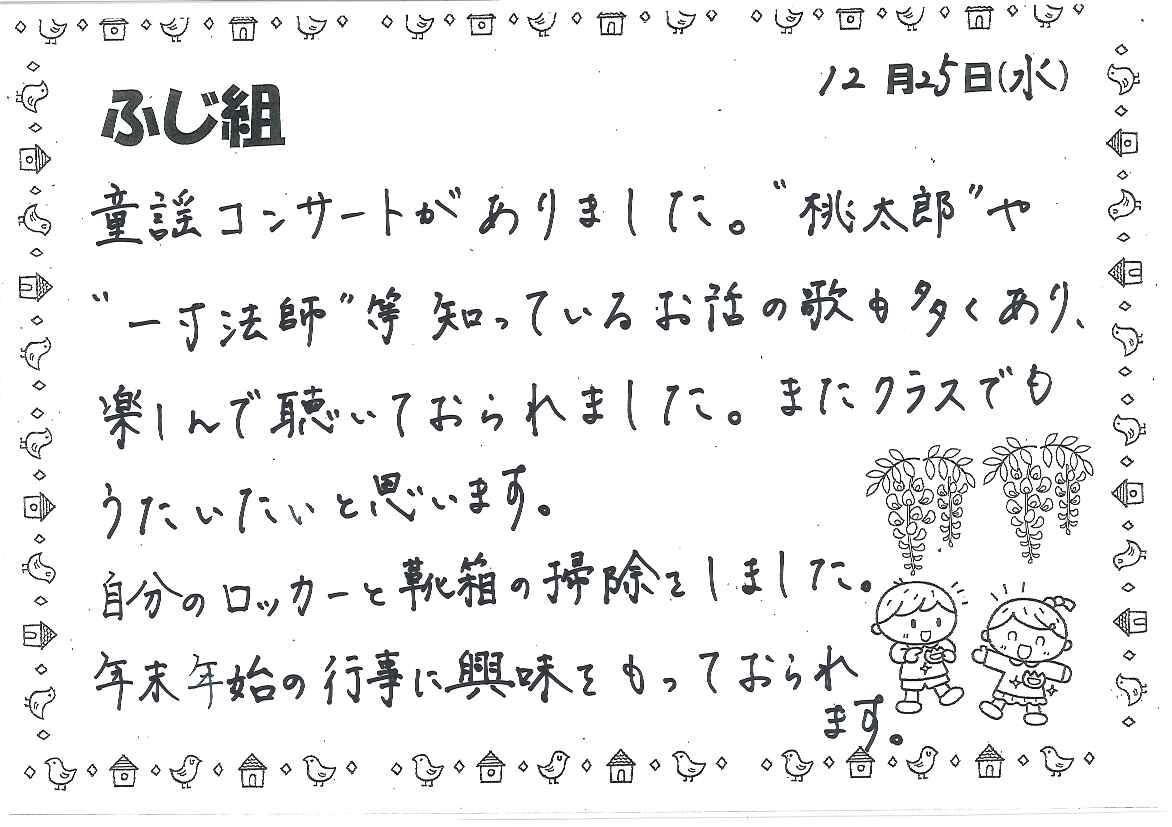 12月25日(水)
ふじ組
童謡コンサートがありました。“桃太郎”や
“一寸法師”等知っているお話の歌も多くあり、
楽しんで聴いておられました。またクラスでも
うたいたいと思います。
自分のロッカーと靴箱の掃除をしました。
年末年始の行事に興味をもっておられ
ます。